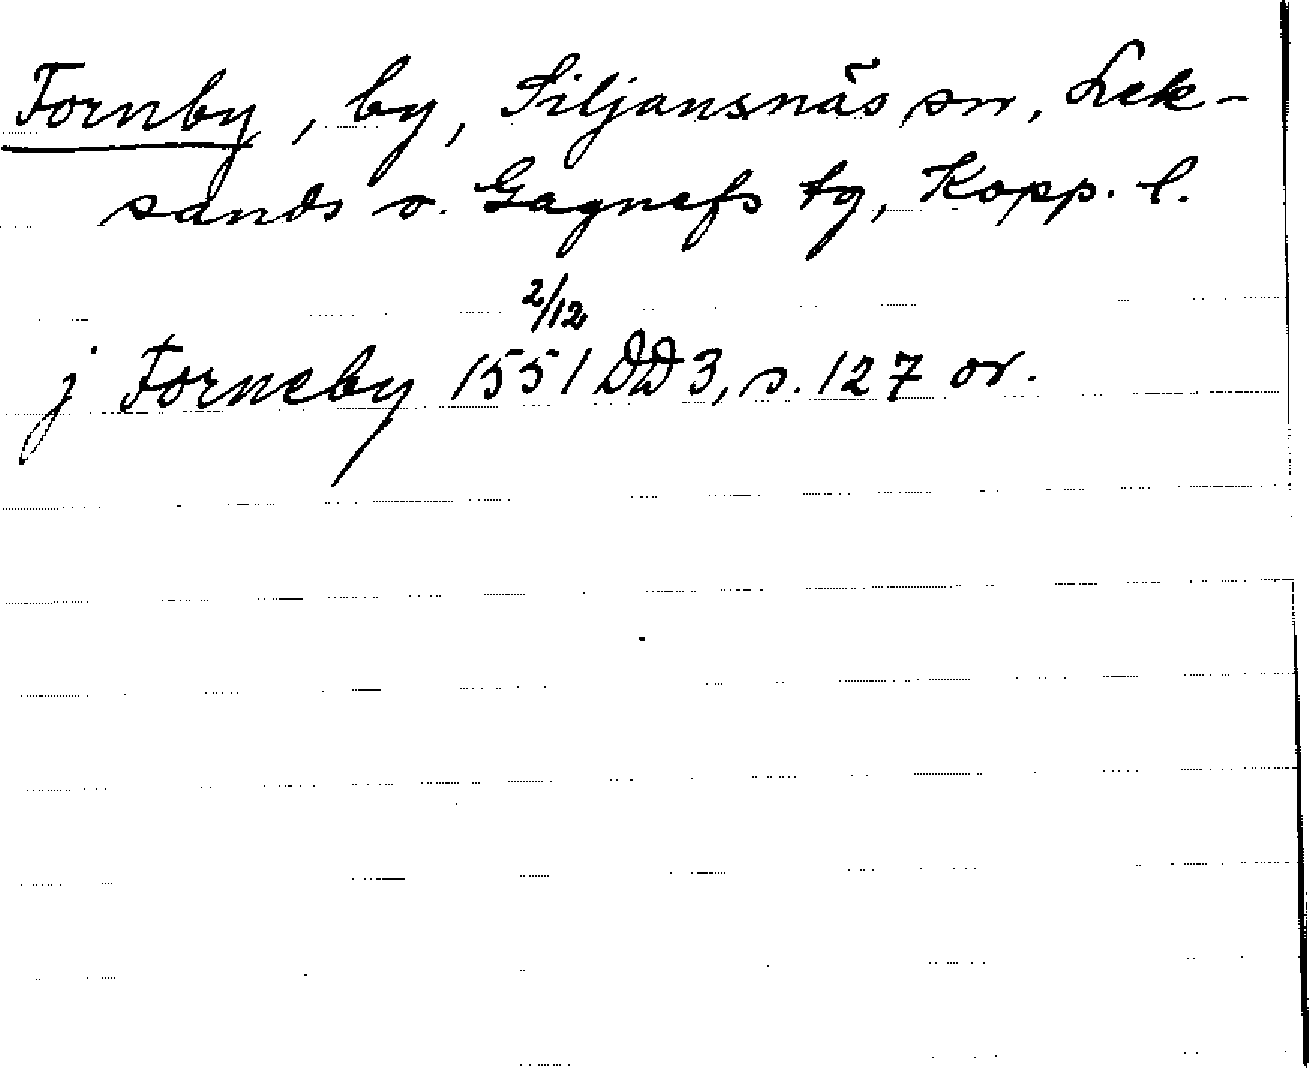 Fornby, by, Siljansnäs sn, Lek-
sands o. Gagnefs tg, Kopp. l.
2/12
j Forneby 1551 DD3, s. 127 or.